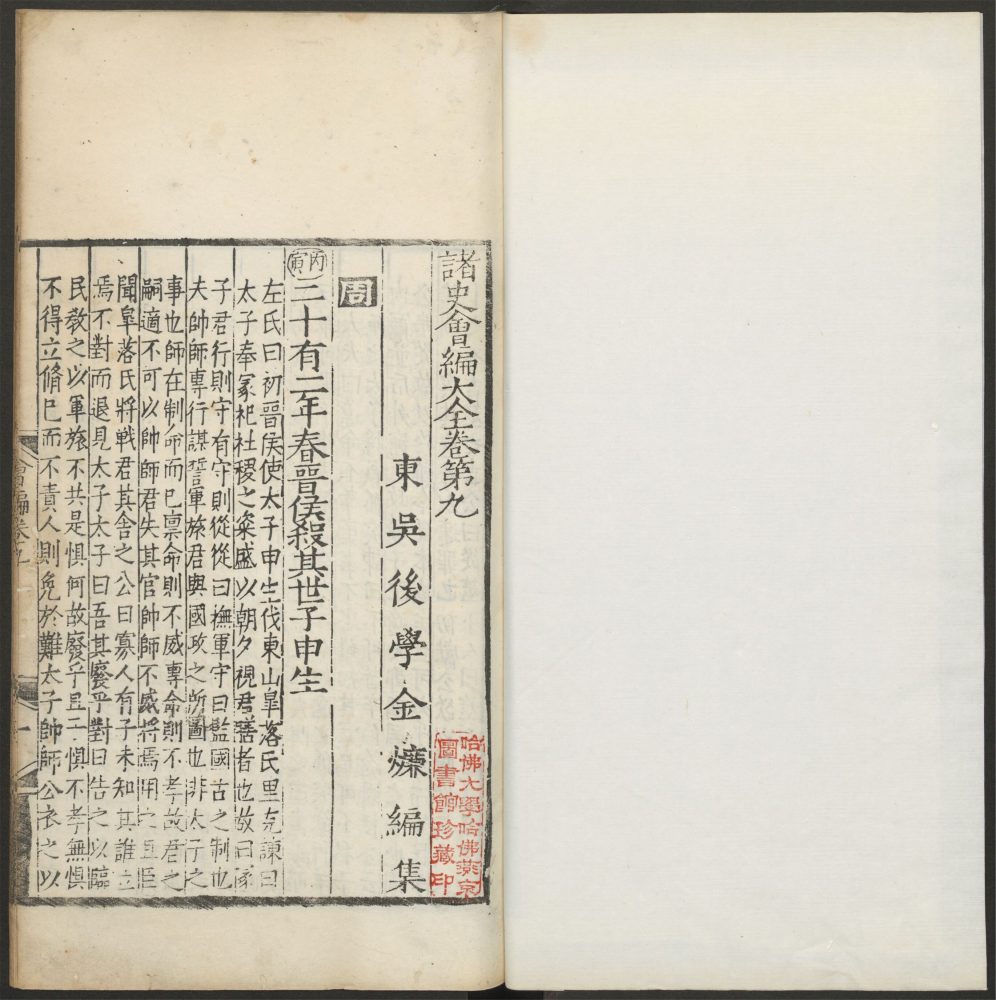 諸史會編大全卷第九
東吳後學金燫編集
哈佛大學哈佛燕京
圖書館珍藏印
周
丙寅三十有二年春晉侯殺其世子申生
左氏曰初晉侯使太子申生伐東山皐落氏里克諫曰
太子奉冢祀社稷之粢盛以朝夕視君膳者也故曰冢
子君行則守有守則從從曰撫軍守曰監國古之制也
夫帥師專行謀誓軍旅君與國政之所圖也非太子之
事也師在制命而已禀命則不威專命則不孝故君之
嗣適不可以帥師君失其官帥師不威將焉用之且臣
聞皐落氏將戰君其舍之公曰寡人有子未知其誰立
焉不對而退見太子太子曰吾其廢乎對曰告之以臨
民教之以軍旅不共是惧何故廢乎且子惧不孝無惧
不得立脩已而不責人則免於難太子帥師公衣之以
會編卷九
一